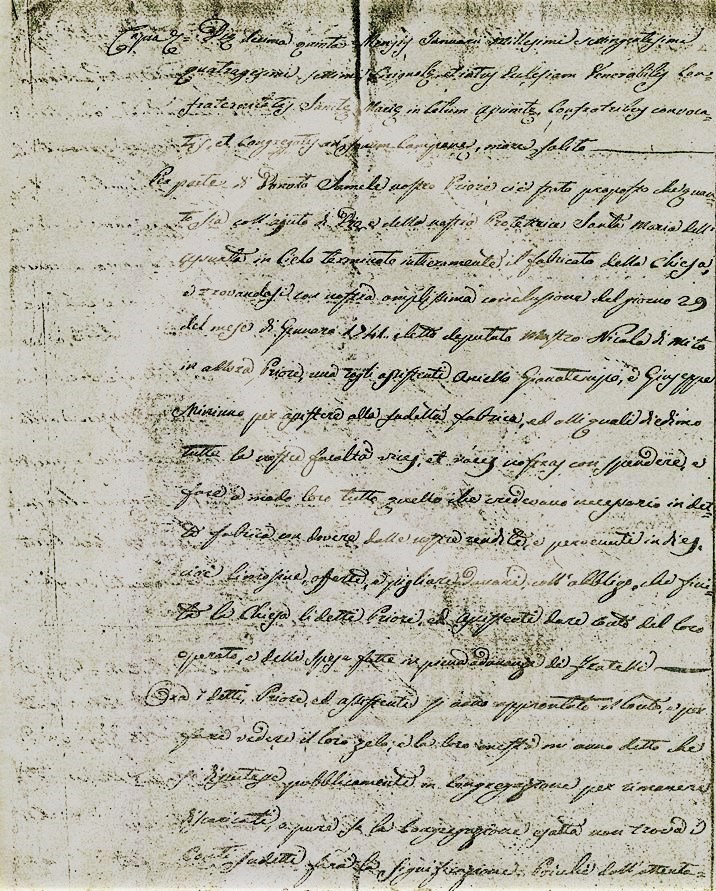 Copia Die decima quinta Mensis Januarii millesimi settingentesimi
quatragesimi settimi intus Ecclesiam Venerabilis Con-
fraternitatis Sanctae Mariae in Celum Confratribus convoca-
tis, et congregatis ad sonum Campane, more solito
Per parte di Donato Samele nostro Priore ci è stato proposto che quan-
to sia coll'aguto di Dio e della nostra Protettrice Santa Maria dell'
Assunta in Celo terminato intieramente il fabbricato della Chiesa,
e trovandosi con nostra amplissima conclusione del giorno 29
del mese di Gennaro 1741 eletto deputato Mastro Nicola di Mito
in allora Priore, una cogli assistenti Aniello e Giuseppe
Mininno per assistere alla sudetta fabrica, ed alli quali diedimo
tutte le nostre facoltà vices, et voces nostras con spendere, e
fare a modo loro tutto quello che vedevano necessario in det-
ta fabrica con dovere dalle nostre rendite, e pervenute in
limosine, offerte, e pigliare denare, coll'obbligo, che fini-
ta la Chiesa li detti Priore, ed Assistenti dare conto del loro
operato, e della spesa fatta in piena adonanza di fratelli
Ora i detti, Priore, ed assistenti si anno approntato il conto, e per
fare vedere il loro zelo, e la loro onestà mi anno detto che
pubblicamente in congregazione per rimanere
discaricati, o pure se la Congregazione esatta non trova i
Conti sudetti farà la significazione. Poiché dall'attenta-